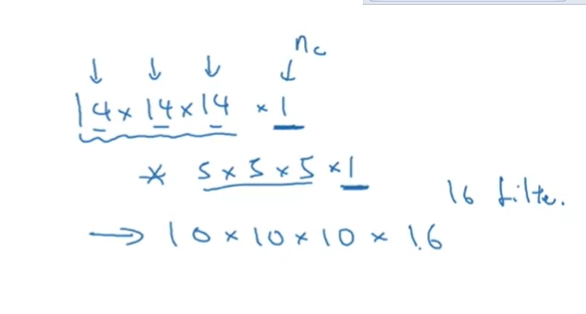 n_c
↓ ↓ ↓ ↓
14 × 14 × 14 × 1
* 5 × 5 × 5 × 1
16 filte.
→ 10 × 10 × 10 × 16